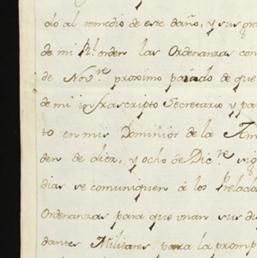 do al remedio de este daño, y sus gra
de mi Rl. orden las Ordenanzas con
de Nove. proximo pasado de que
de mi infrascripto Secretario y pa
to en mis Dominios de la Am
den de diez, y ocho de Dice. sig
dias se comuniquen á los Prelado
Ordenanzas para que unan sus
dantes Militares para la promp